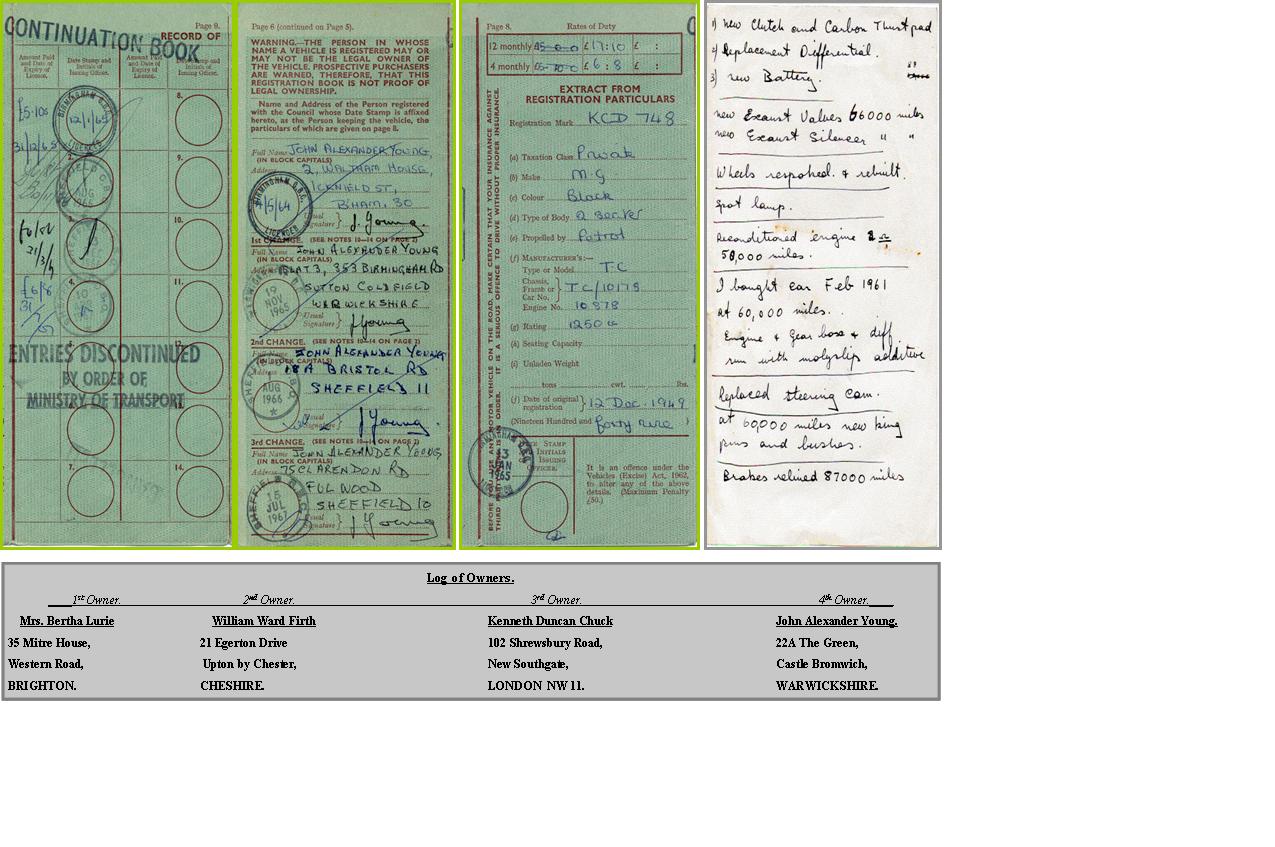 CONTINUATION BOOK
Page 9.
RECORD OF
Amount Paid and Date of Expiry of Licence.
Date Stamp and Initials of Issuing Officer.
Amount Paid and Date of Expiry of Licence.
Date Stamp and Initials of Issuing Officer.
£5-10s
31/12/65
BIRMINGHAM
12/1/65
LICENCES
8.
2.
AUG
1965
9.
10.
11.
£6/8
ENTRIES DISCONTINUED
BY ORDER OF
MINISTRY OF TRANSPORT
7.
14.
Page 6 (continued on Page 5).
WARNING.—THE PERSON IN WHOSE
NAME A VEHICLE IS REGISTERED MAY OR
MAY NOT BE THE LEGAL OWNER OF
THE VEHICLE. PROSPECTIVE PURCHASERS
ARE WARNED, THEREFORE, THAT THIS
REGISTRATION BOOK IS NOT PROOF OF
LEGAL OWNERSHIP.
Name and Address of the Person registered
with the Council whose Date Stamp is affixed
hereto, as the Person keeping the vehicle, the
particulars of which are given on page 8.
Full Name JOHN ALEXANDER YOUNG,
(IN BLOCK CAPITALS)
Address 2, WALTHAM HOUSE,
ICKNIELD ST,
B'HAM, 30
BIRMINGHAM C.B.C.
4/5/64
LICENCES
Usual Signature } J. Young.
1st CHANGE. (SEE NOTES 10—14 ON PAGE 2)
Full Name JOHN ALEXANDER YOUNG
(IN BLOCK CAPITALS)
Address FLAT 3, 353 BIRMINGHAM RD
SUTTON COLDFIELD
WARWICKSHIRE
19
NOV
1965
Usual Signature } J Young
2nd CHANGE. (SEE NOTES 10—14 ON PAGE 2)
Full Name JOHN ALEXANDER YOUNG
(IN BLOCK CAPITALS)
Address 18A BRISTOL RD
SHEFFIELD 11
SHEFFIELD C.B.C.
AUG
1966
Usual Signature } J Young.
3rd CHANGE. (SEE NOTES 10—14 ON PAGE 2)
Full Name JOHN ALEXANDER YOUNG
(IN BLOCK CAPITALS)
Address 75 CLARENDON RD
FULWOOD
SHEFFIELD 10
SHEFFIELD C.B.C.
15
JUL
1967
Usual Signature } J Young
Page 8. Rates of Duty
12 monthly £15-0-0 £17:10 £ :
4 monthly £5-10-0 £6:8 £ :
EXTRACT FROM
REGISTRATION PARTICULARS
Registration Mark KCD 748
(a) Taxation Class Private
(b) Make M.G
(c) Colour Black
(d) Type of Body 2 Seater
(e) Propelled by Petrol
(f) MANUFACTURER'S:—
Type or Model TC
Chassis, Frame or Car No. } TC/10178
Engine No. 10878
(g) Rating 1250 cc
(h) Seating Capacity
(i) Unladen Weight
tons cwt. lbs.
(j) Date of original registration } 12 Dec. 1949
(Nineteen Hundred and forty nine)
BIRMINGHAM
13
JAN
1965
DATE STAMP
INITIALS
ISSUING
OFFICER.
It is an offence under the
Vehicles (Excise) Act, 1962,
to alter any of the above
details. (Maximum Penalty
£50.)
BEFORE USING ANY MOTOR VEHICLE ON THE ROAD, MAKE CERTAIN THAT YOUR INSURANCE AGAINST
THIRD PARTY IS IN ORDER. IT IS A SERIOUS OFFENCE TO DRIVE WITHOUT PROPER INSURANCE.
1) new Clutch and Carbon Thrust pad
2) Replacement Differential.
3) new Battery.
new Exaust Valves 66000 miles
new Exaust Silencer " "
Wheels respoked & rebuilt.
spot lamp.
Reconditioned engine
58,000 miles.
I bought car Feb 1961
at 60,000 miles.
Engine & Gear box & diff
run with molyslip additive
Replaced steering cam.
at 60,000 miles new king
pins and bushes.
Brakes relined 87000 miles
Log of Owners.
1st Owner. 2nd Owner. 3rd Owner. 4th Owner.
Mrs. Bertha Lurie William Ward Firth Kenneth Duncan Chuck John Alexander Young.
35 Mitre House, 21 Egerton Drive 102 Shrewsbury Road, 22A The Green,
Western Road, Upton by Chester, New Southgate, Castle Bromwich,
BRIGHTON. CHESHIRE. LONDON NW11. WARWICKSHIRE.